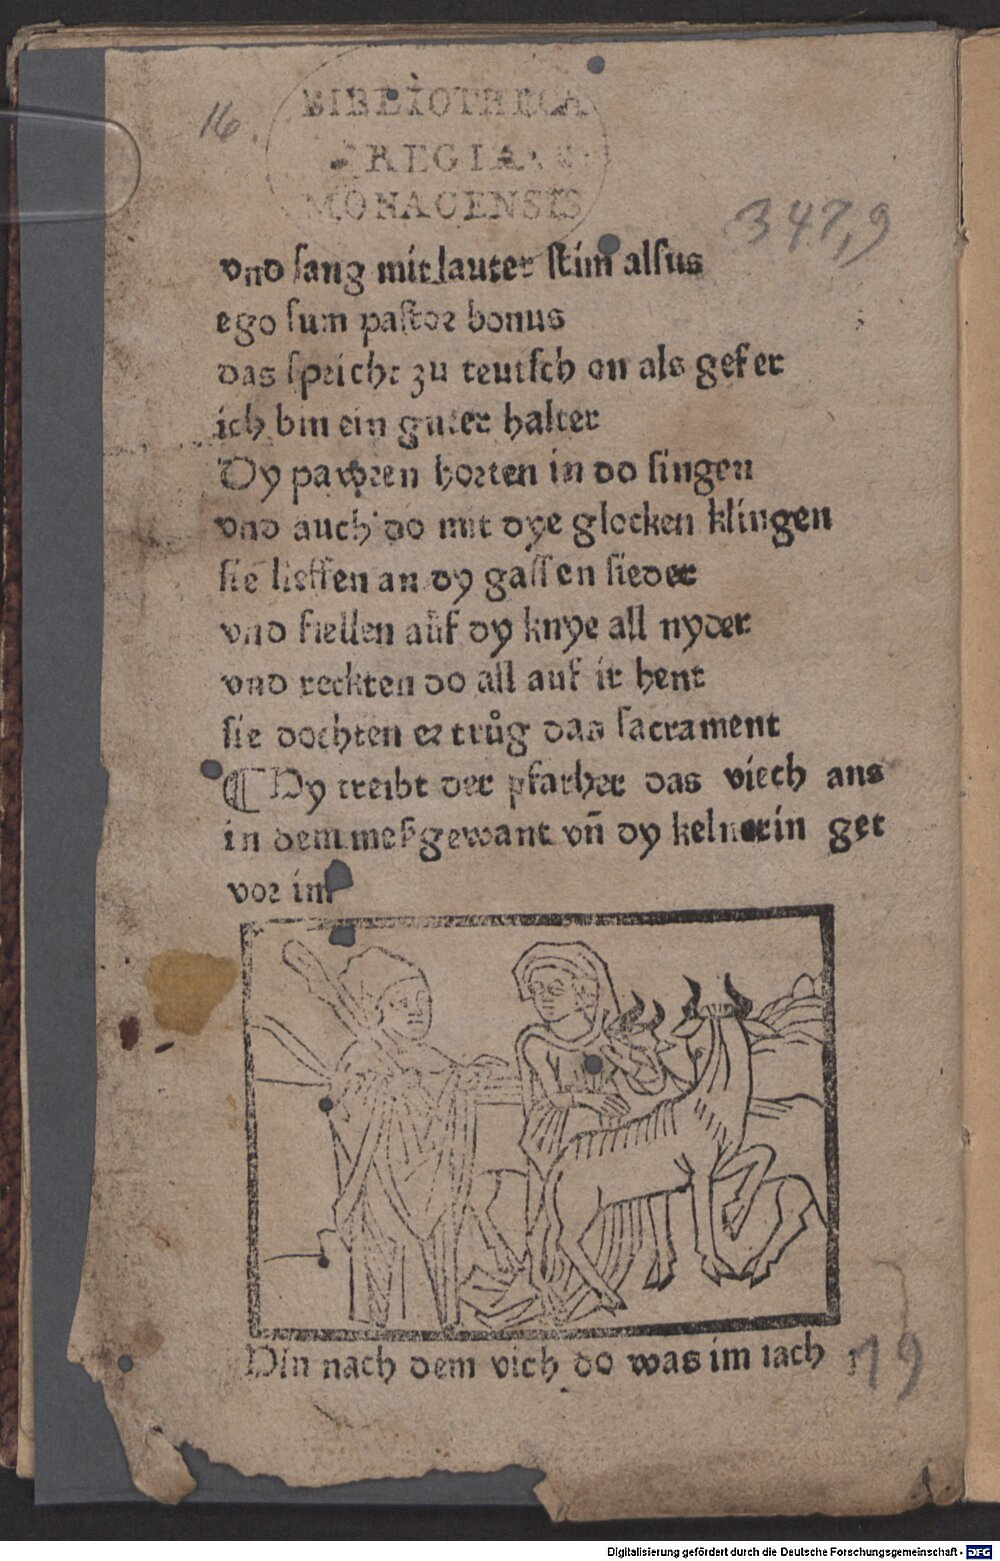 16.
BIBLIOTHECA
REGIA
MONACENSIS
347,9
vnd sang mit lauter stim alsus
ego sum pastor bonus
das spricht zu teutsch on als gefer
ich bin ein guter halter
Dy pawren horten in do singen
vnd auch do mit dye glocken klingen
sie lieffen an dy gassen sieder
vnd fiellen auf dy knye all nyder
vnd reckten do all auf ir hent
sie dochten er trůg das sacrament
¶ Hy treibt der pfarher das viech aus
in dem meßgewant vn̄ dy kelnerin get
vor im
Hin nach dem vich do was im iach
19
Digitalisierung gefördert durch die Deutsche Forschungsgemeinschaft - DFG